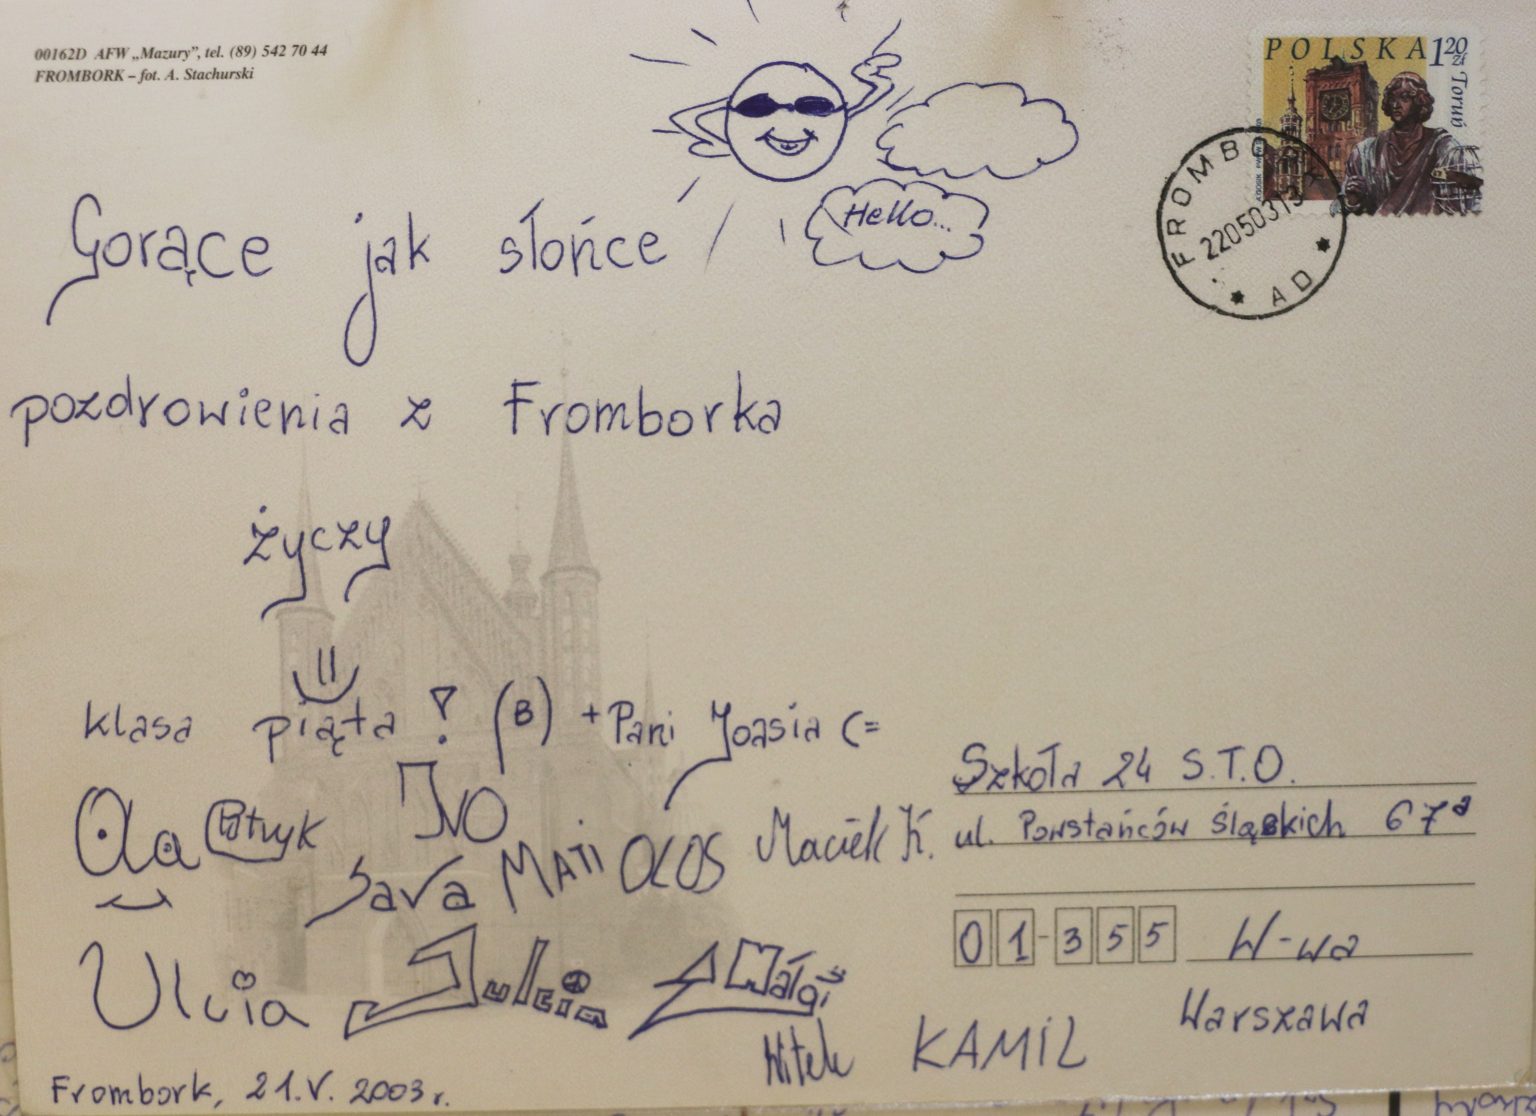 00162D AFW „Mazury”, tel. (89) 542 70 44
FROMBORK – fot. A. Stachurski
POLSKA 1 20 zł
Toruń
FROMBORK
220503
AD
Hello...
Gorące jak słońce
pozdrowienia z Fromborka
życzy
klasa piąta! (B) + Pani Joasia (=
Ola Patryk IVO
Sara MATI OLOS Maciek K.
Ulcia Julcia Małgi
Witek KAMIL
Frombork, 21.V.2003r.
Szkoła 24 S.T.O.
ul. Powstańców Śląskich 67a
01-355 W-wa
Warszawa